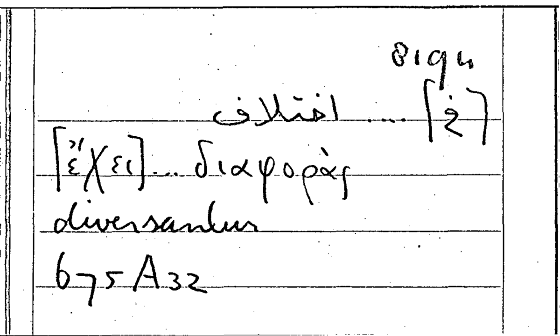 اختلاف ....
[ἔχει]... διαφοράς
diversantur
675 A 32